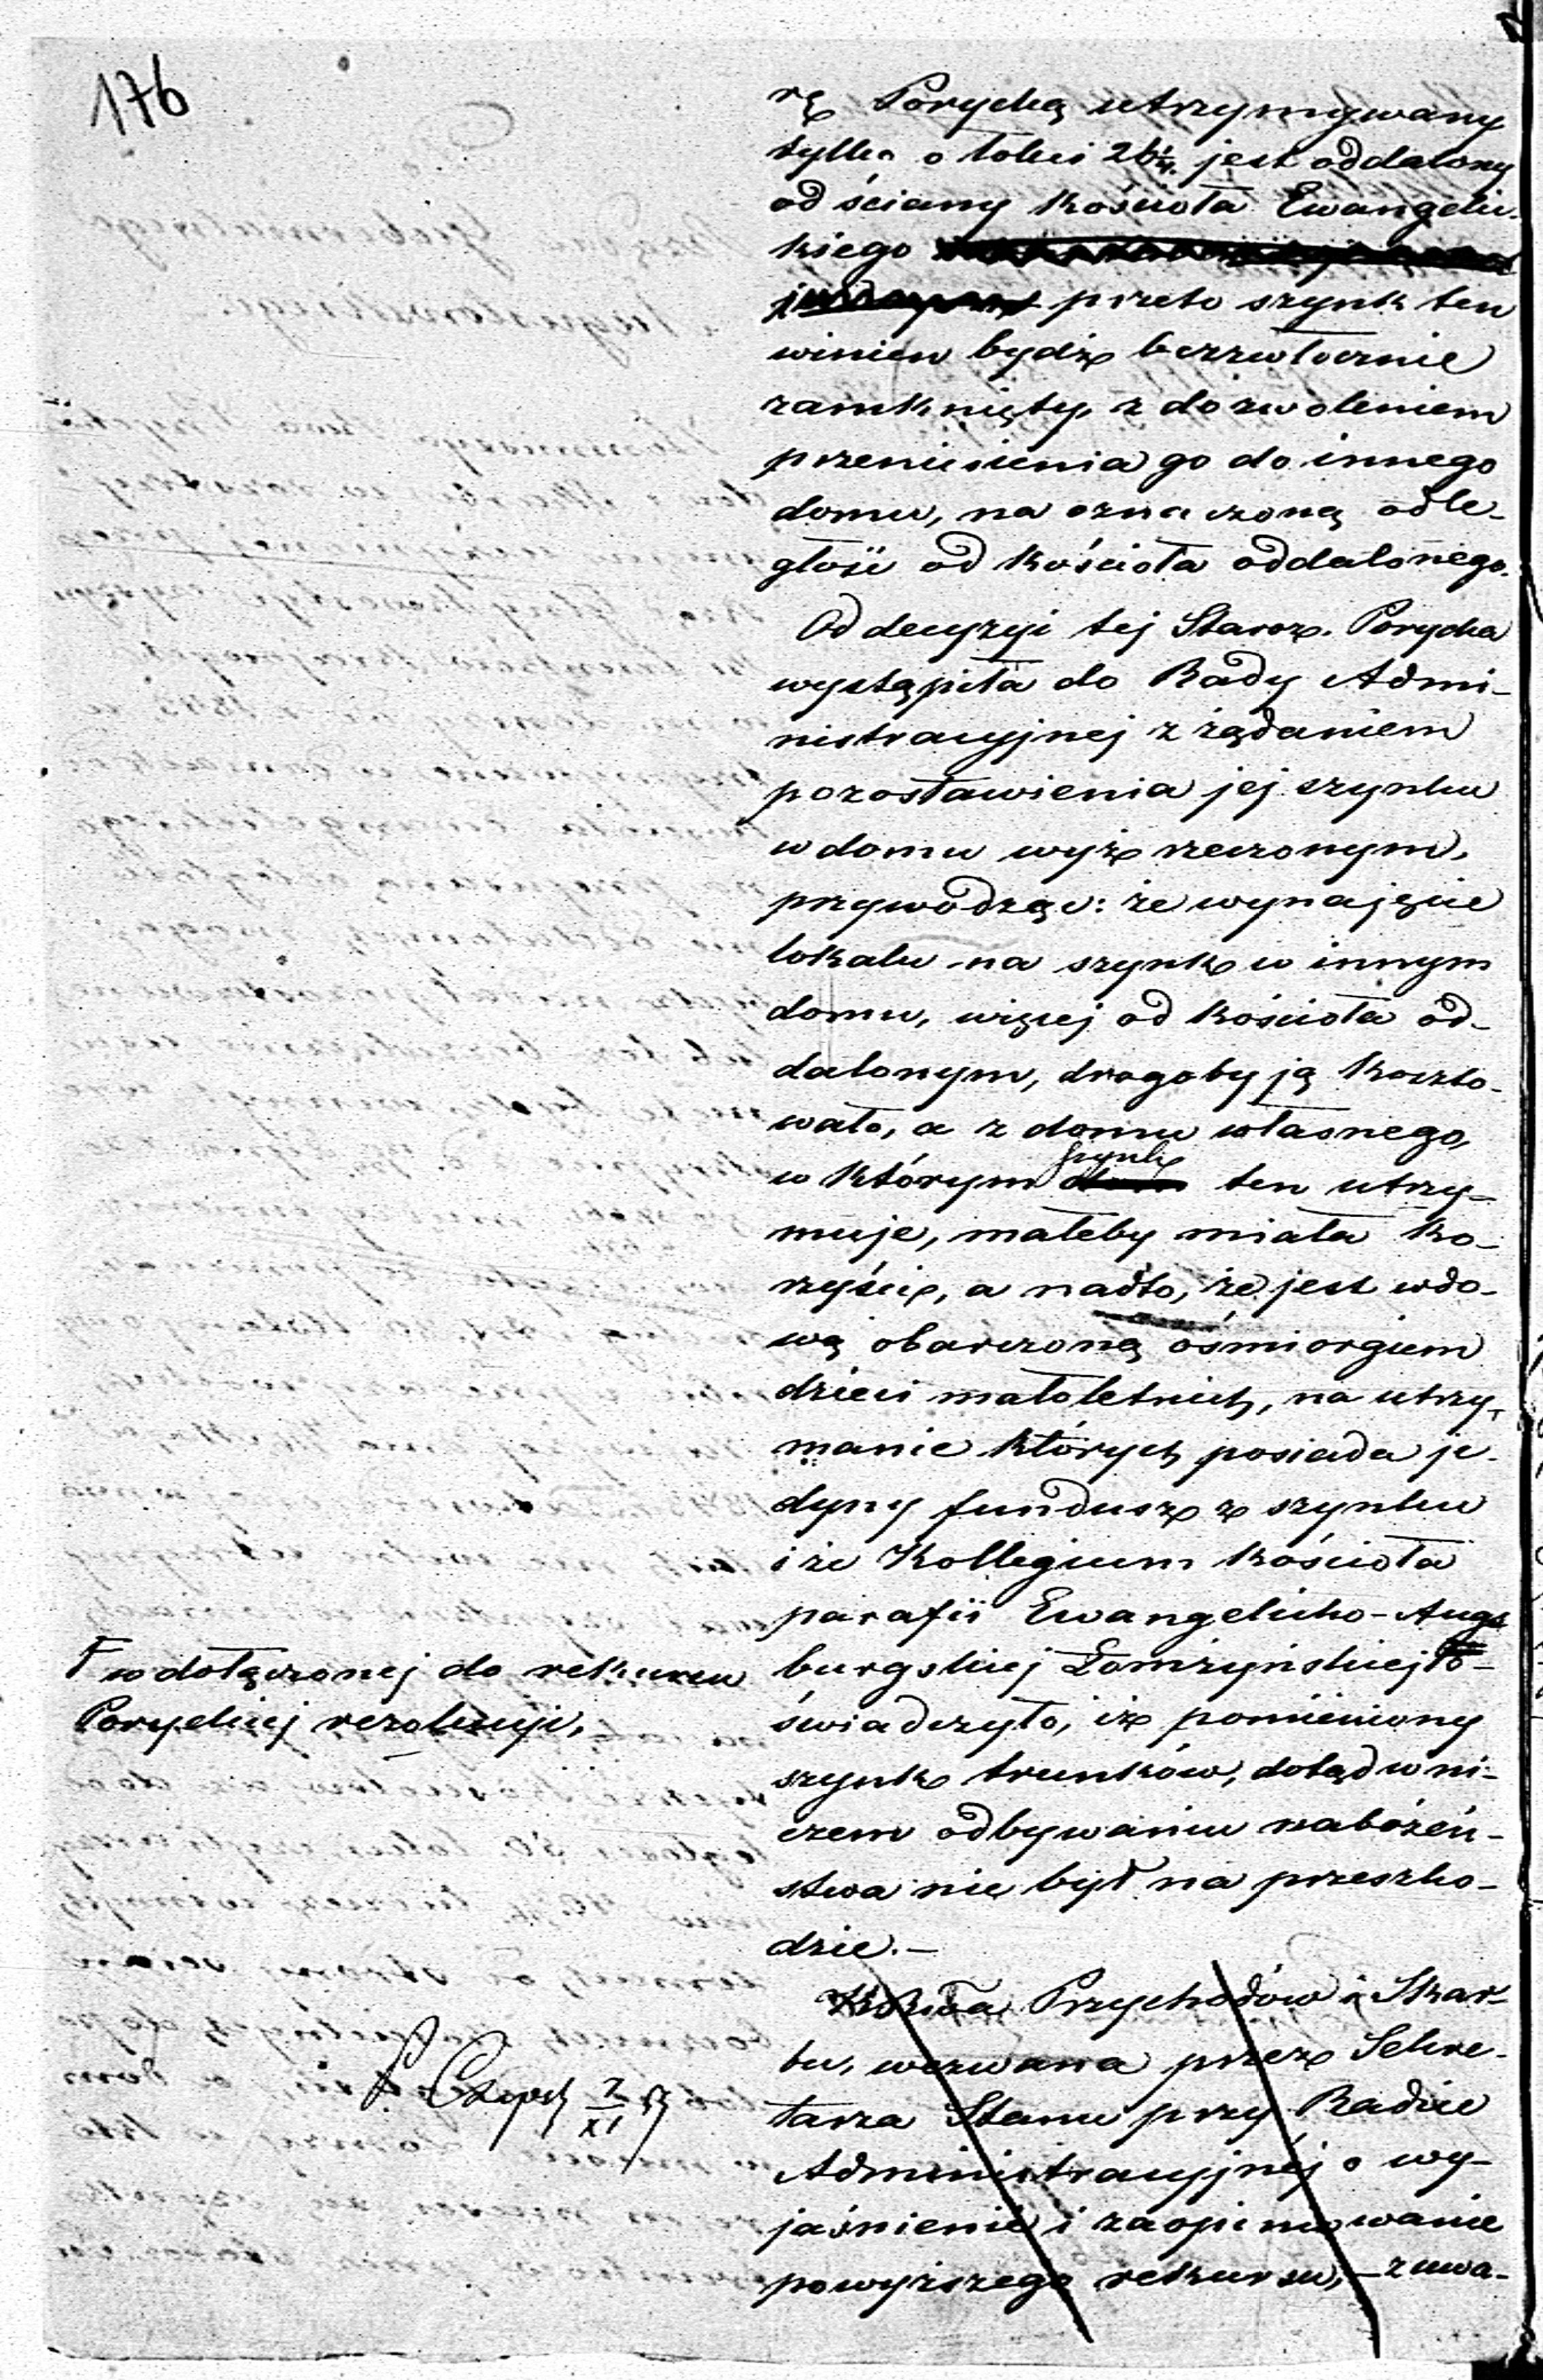 176
rę Porychą utrzymywany
tylko o łokci 26¼ jest oddalony
od ściany kościoła Ewangelic-
kiego
przeto szynk ten
winien bydź bezzwłocznie
zamknięty, z dozwoleniem
przeniesienia go do innego
domu, na oznaczoną odle-
głość od kościoła oddalonego.
Od decyzyi tej Staroz. Porycha
wystąpiła do Rady Admi-
nistracyjnej z żądaniem
pozostawienia jej szynku
w domu wyż rzeczonym,
przywodząc: że wynajęcie
lokalu na szynk w innym
domu, więcej od kościoła od-
dalonym, drogoby ją koszto-
wało, a z domu własnego,
szynk
w którym ten utrzy-
muje, małeby miała ko-
rzyście, a nadto, że jest wdo-
wą obarczoną ośmiorgiem
dzieci małoletnich, na utrzy-
manie których posiada je-
dyny fundusz z szynku
i że Kollegium kościoła
parafii Ewangelicko-Augs
burgskiej Łomżyńskiej
świadczyło, iż pomieniony
szynk trunków, dotąd w ni-
czem odbywaniu nabożeń-
stwa nie był na przeszko-
dzie.—
F w dołączonej do rekursu
Porychiej rezolucyi,
Przychodów i Skar-
bu, wezwana przez Sekre-
tarza Stanu przy Radzie
Administracyjnéj o wy-
jaśnienie i zaopiniowanie
powyższego rekursu,— zuwa-